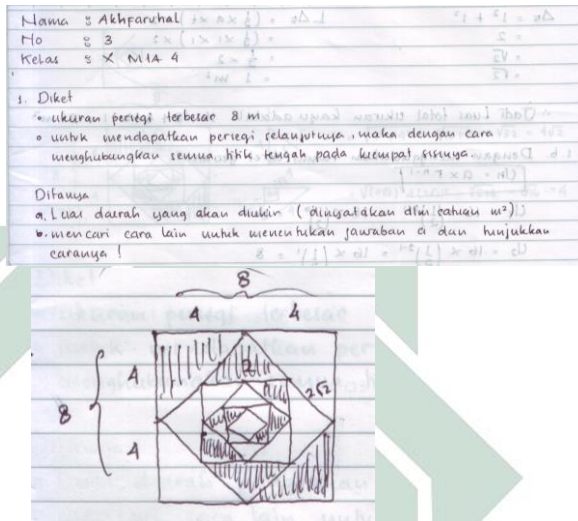 Nama : Akhfaruhal
No : 3
Kelas : X MIA 4
1. Diket
• ukuran persegi terbesar 8 m
• untuk mendapatkan persegi selanjutnya, maka dengan cara
menghubungkan semua titik tengah pada keempat sisinya.
Ditanya
a. Luas daerah yang akan diukir (dinyatakan dlm satuan m²)
b. mencari cara lain untuk menentukan jawaban a dan tunjukkan
caranya !
8
4 4
4
2
2√2
8
4